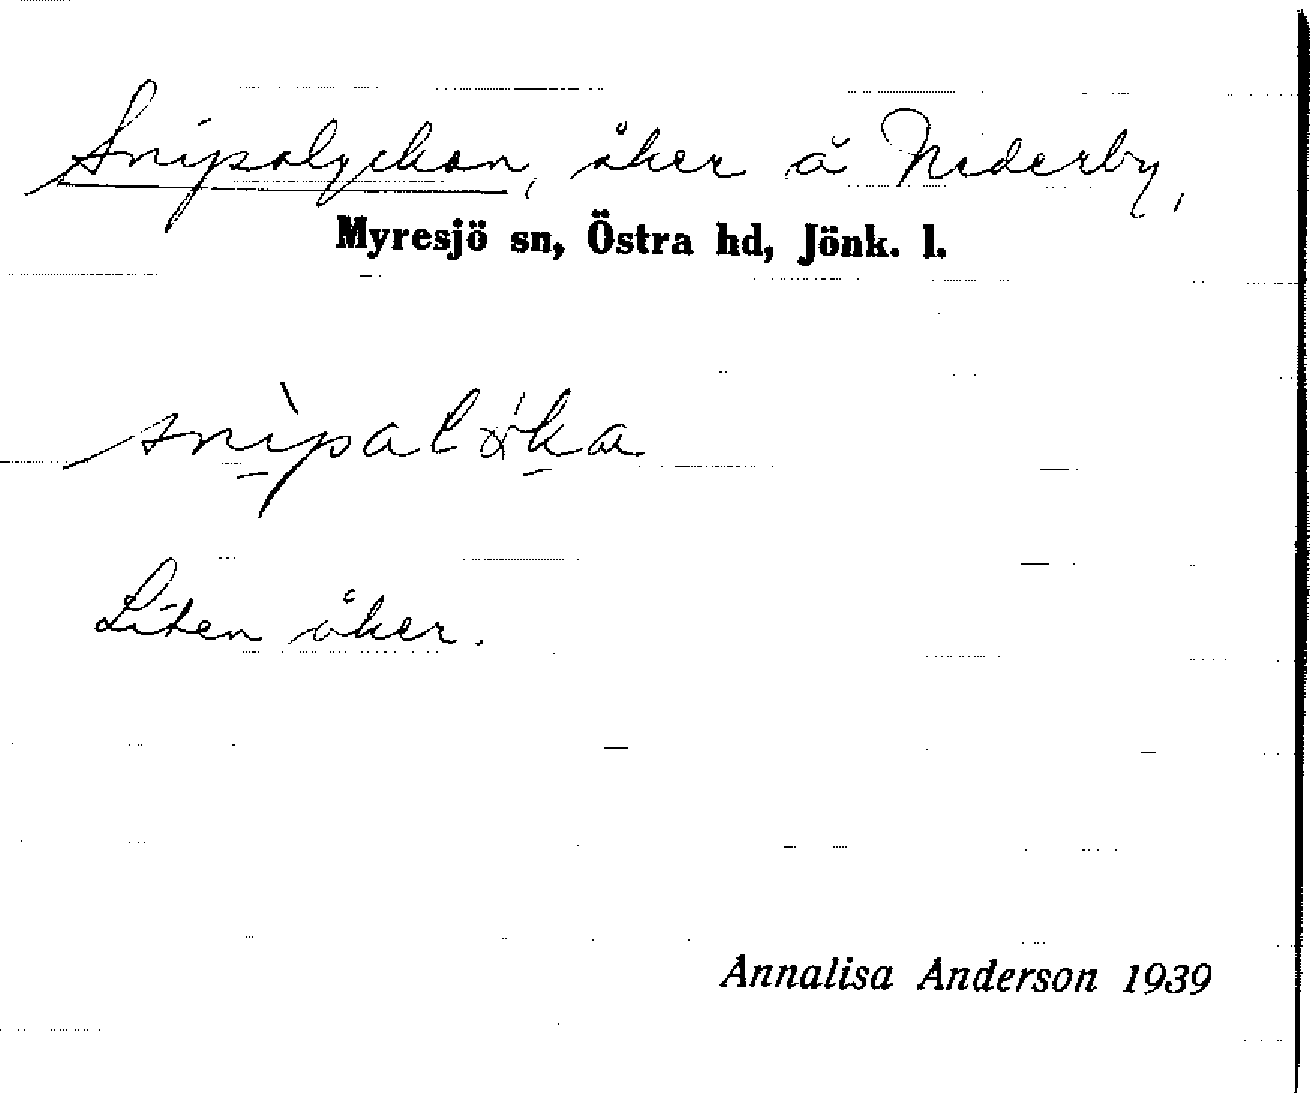 Snipalyckan, åker å Nederby,
Myresjö sn, Östra hd, Jönk. l.
Liten åker.
Annalisa Anderson 1939